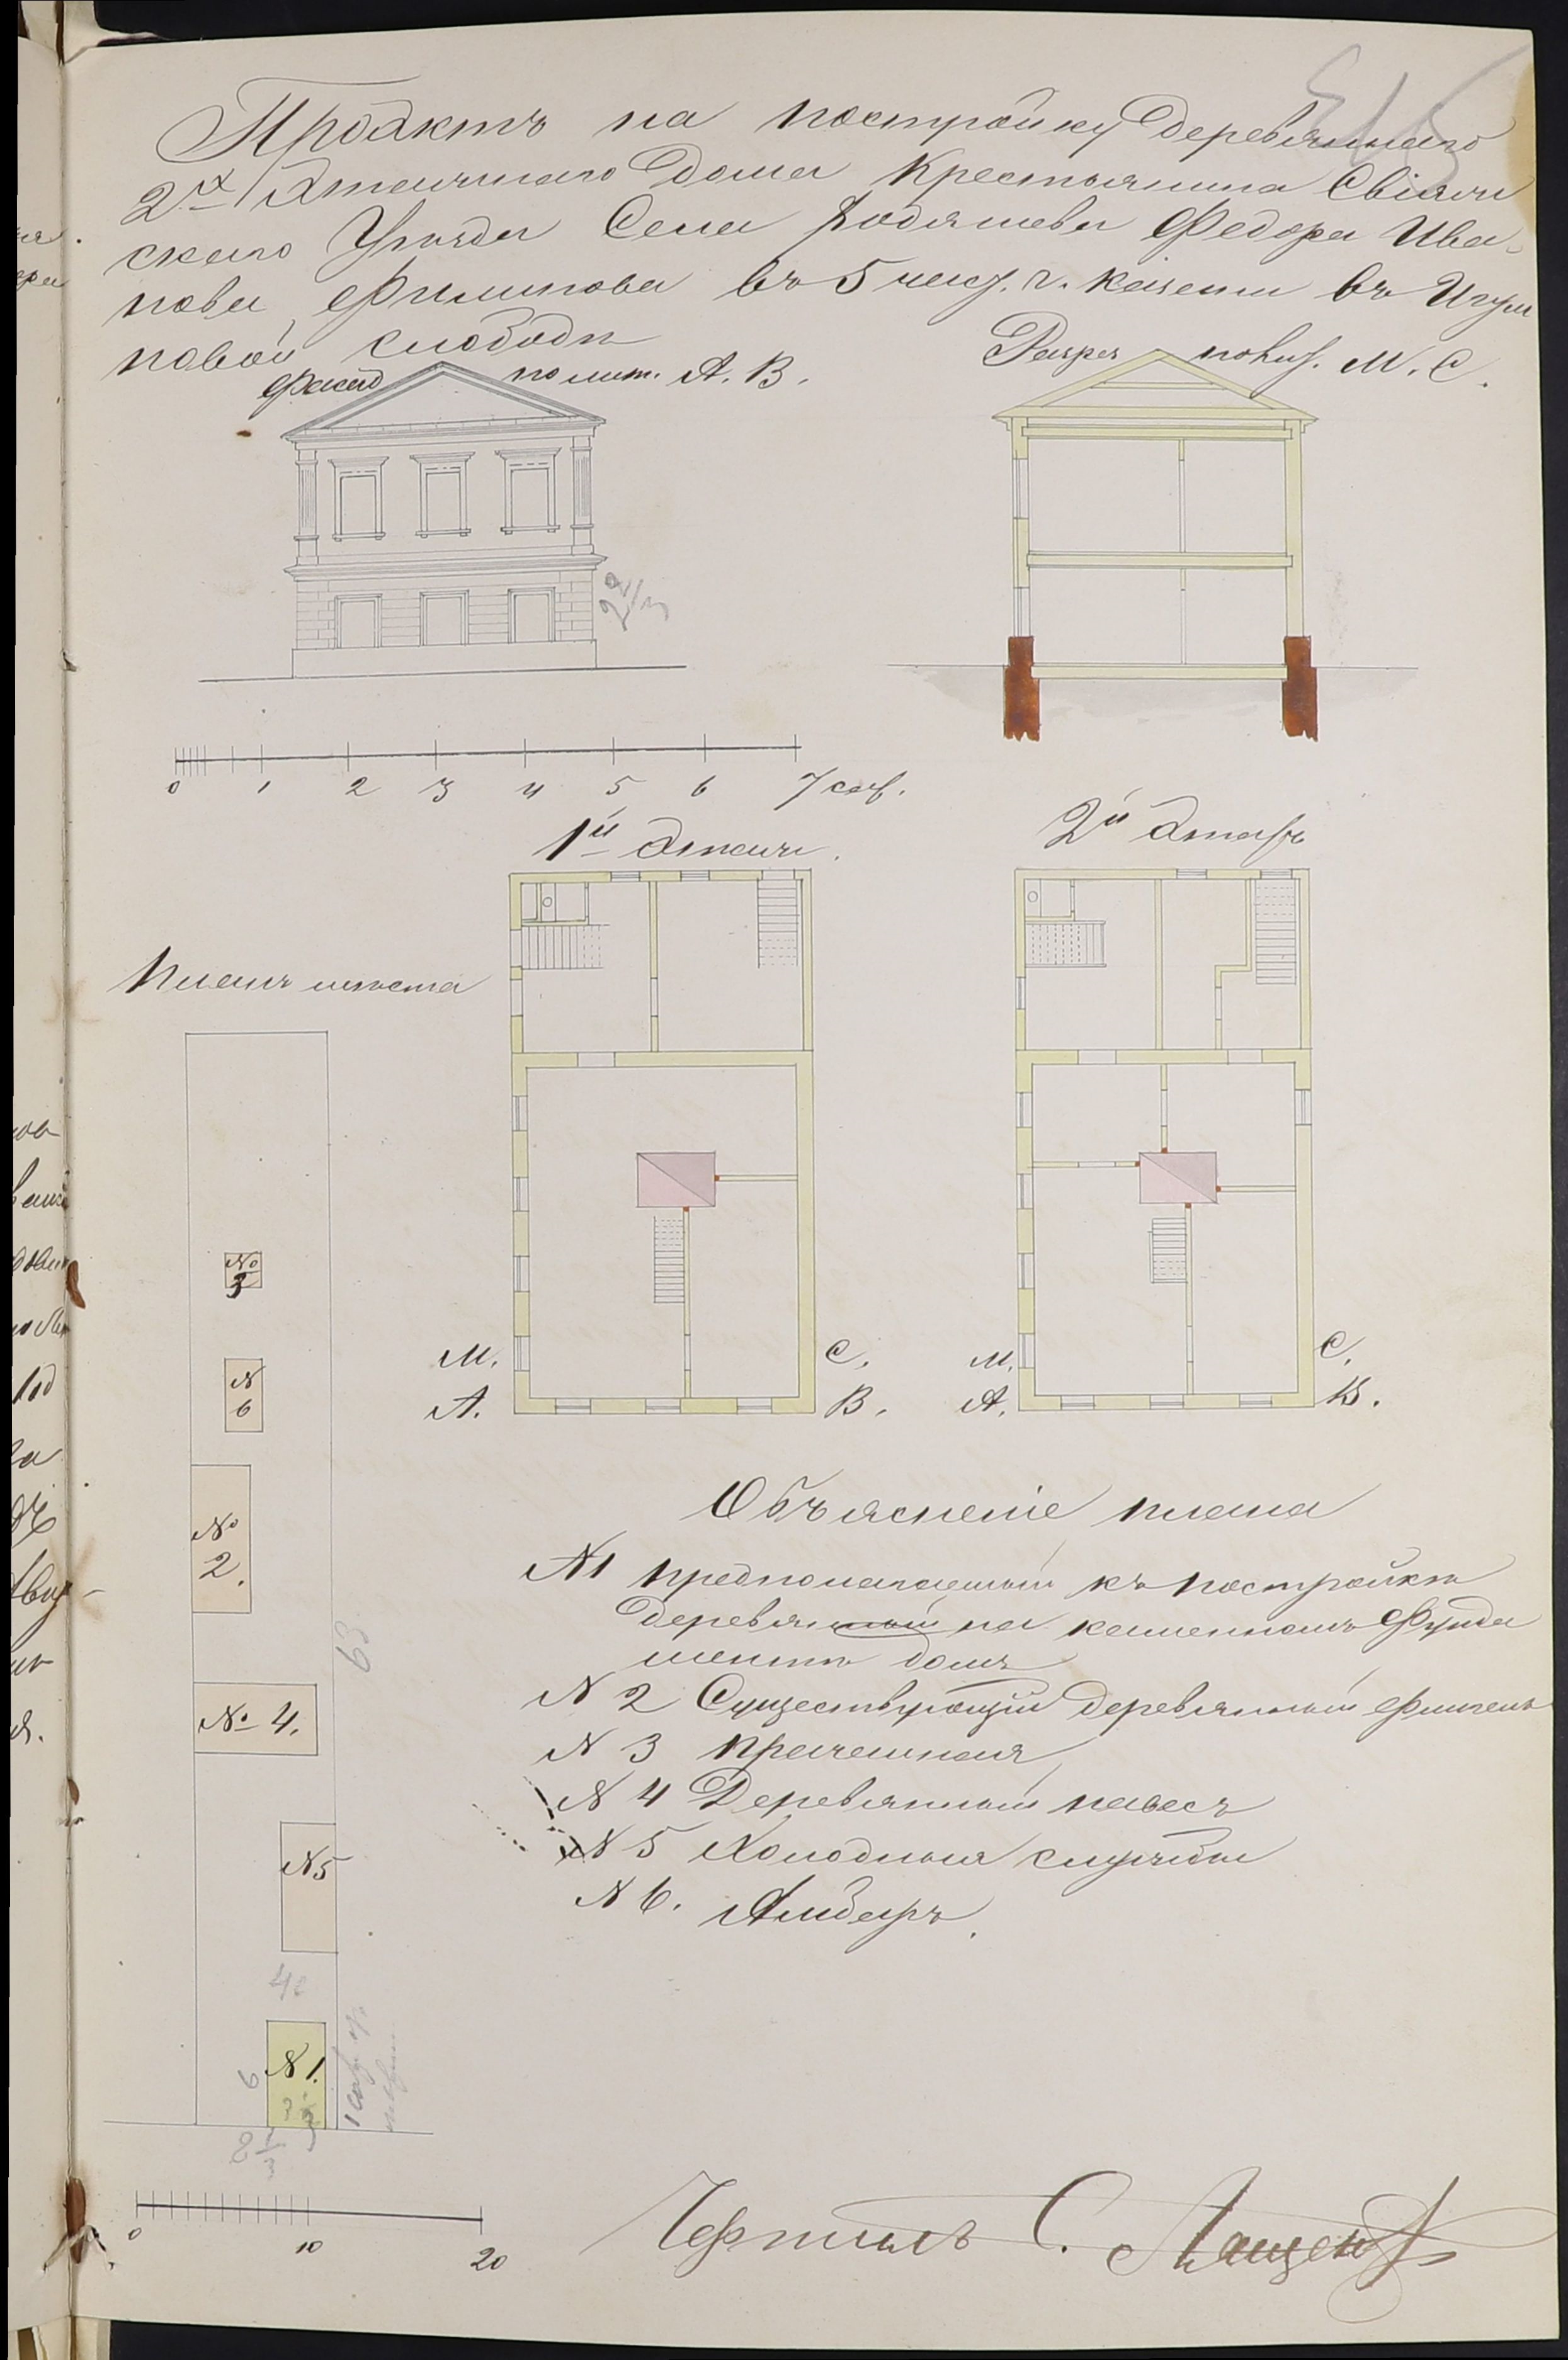 Проэктъ на постройку деревяннаго
2х этажнаго дома крестьянина Свіяж
скаго Уѣзда Села Федора Ива-
нова Филипова въ 5 част. г. Казани въ Игум
новой слободѣ
Фасад по лит. А. В.
Разрез по лит. М. С.
2 2/3
0 1 2 3 4 5 6 7 саж.
1й этажъ.
2й этажъ
Планъ мѣста
М. С.
А. В.
М. С.
А. В.
№ 3
№ 6
№ 2.
№ 4.
№ 5
№ 1.
63
6
Объясненіе плана
№ 1 предполагаемый къ постройкѣ
деревянный на каменномъ фунда
ментѣ домъ
№ 2 Существующій деревянный флигель
№ 3 Прачешная
№ 4 Деревянный навесъ
№ 5 Холодныя службы
№ 6. Амбаръ.
0 10 20
Чертилъ С.